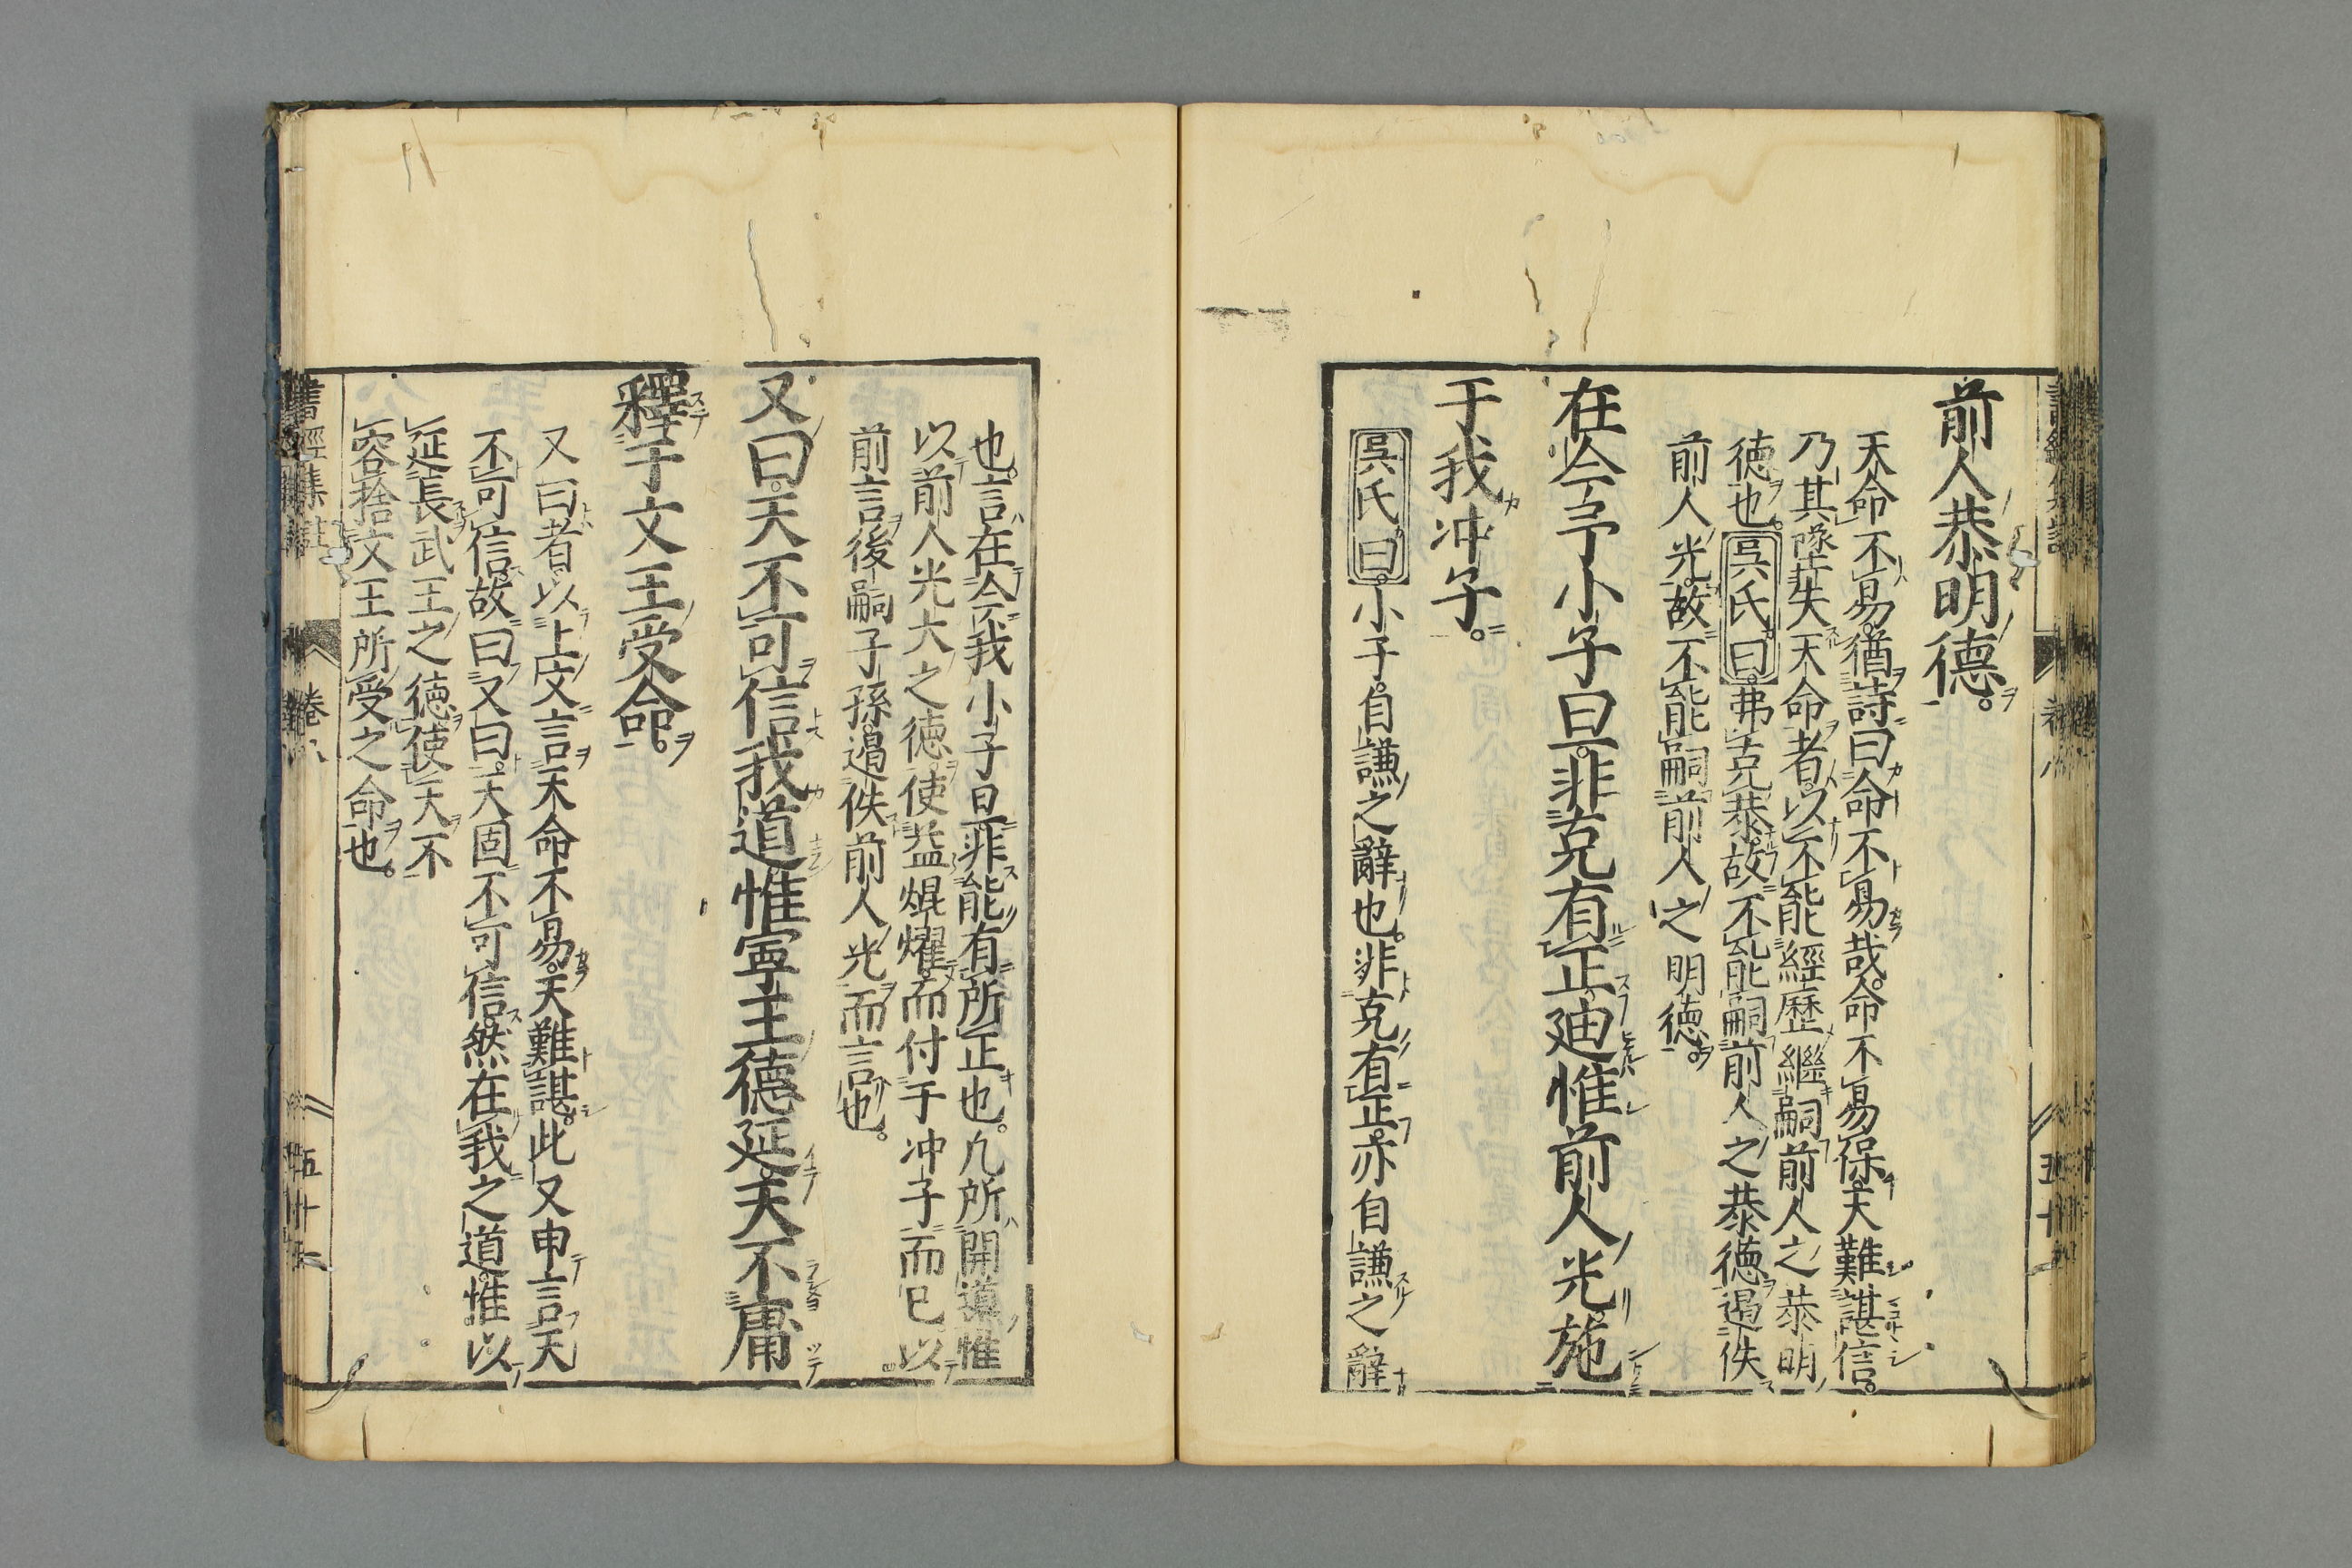 前人恭明德。
天命不易。猶詩曰命不易哉。命不易保。天難諶信。
乃其墜失天命者。以不能經歷繼嗣前人之恭明
德也。吳氏曰。弗克恭故不能嗣前人之恭德。遏佚
前人光。故不能嗣前人之明德。
在今予小子旦。非克有正。迪惟前人光。施
于我冲子。
吳氏曰。小子。自謙之辭也。非克有正。亦自謙之辭
也。言在今我小子旦。非能有所正也。凡所開導。惟
以前人光大之德。使益焜燿。而付于冲子而已。以
前言後嗣子孫。遏佚前人光而言也。
又曰。天不可信。我道惟寧王德延。天不庸
釋于文王受命。
又曰者。以上文言天命不易。天難諶。此又申言天
不可信。故曰又曰。天固不可信。然在我之道。惟以
延長武王之德。使天不
容捨文王所受之命也。
書經集註 卷八 五十六